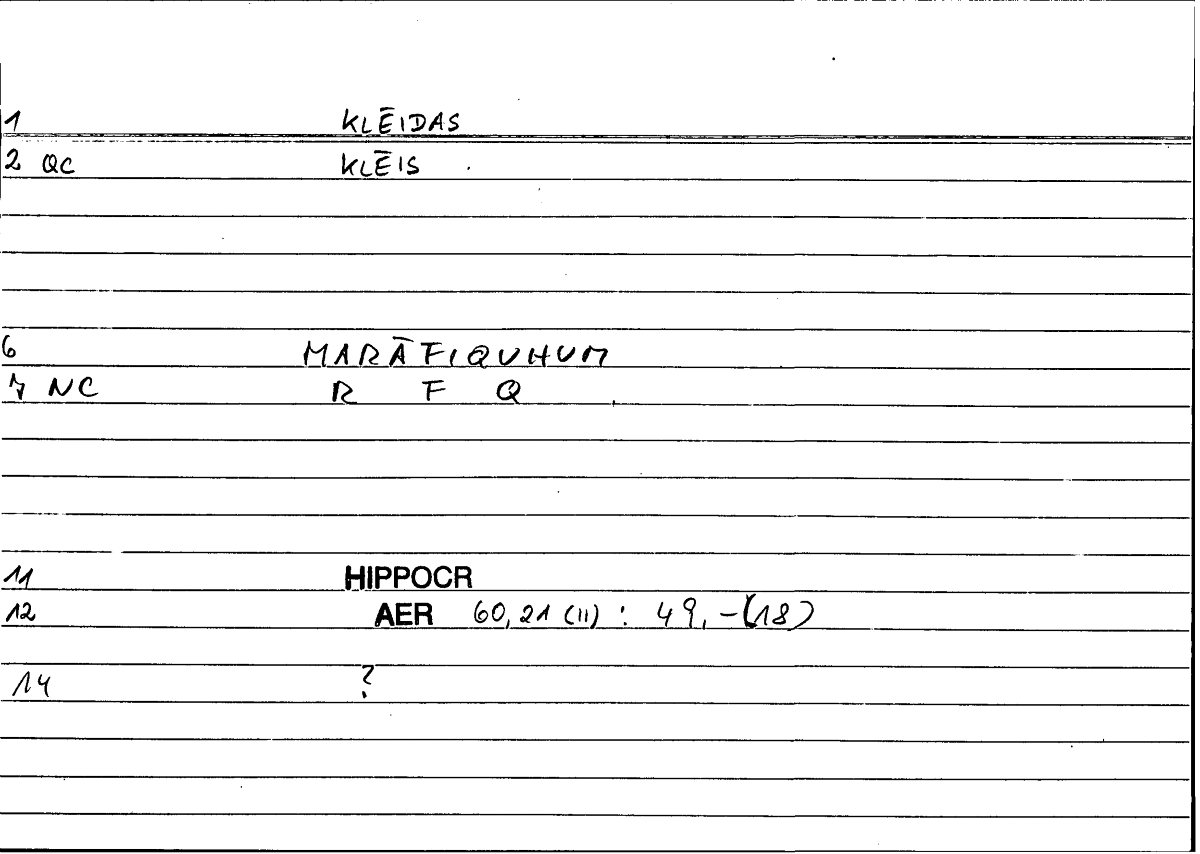 1 KLĒIDAS
2 QC KLĒIS
6 MARĀFIQUHUM
7 NC R F Q
11 HIPPOCR
12 AER 60,21 (11) : 49,-(18)
14 ?